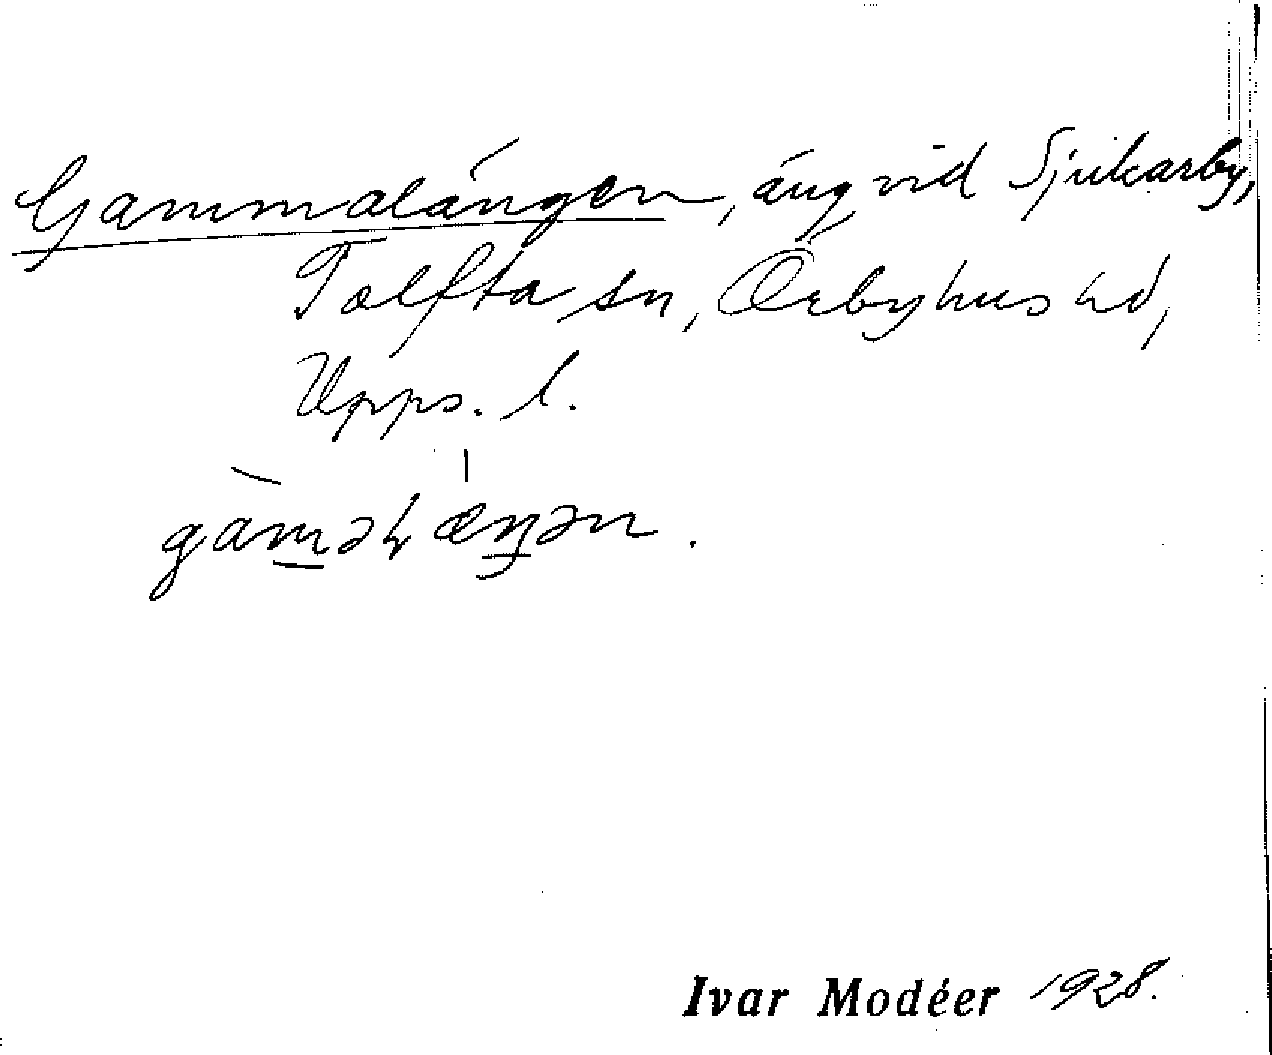 Gammalängen, äng vid Sjukarby,
Tolfta sn, Örbyhus hd,
Upps. l.
gàməɫæŋən.
Ivar Modéer 1928.